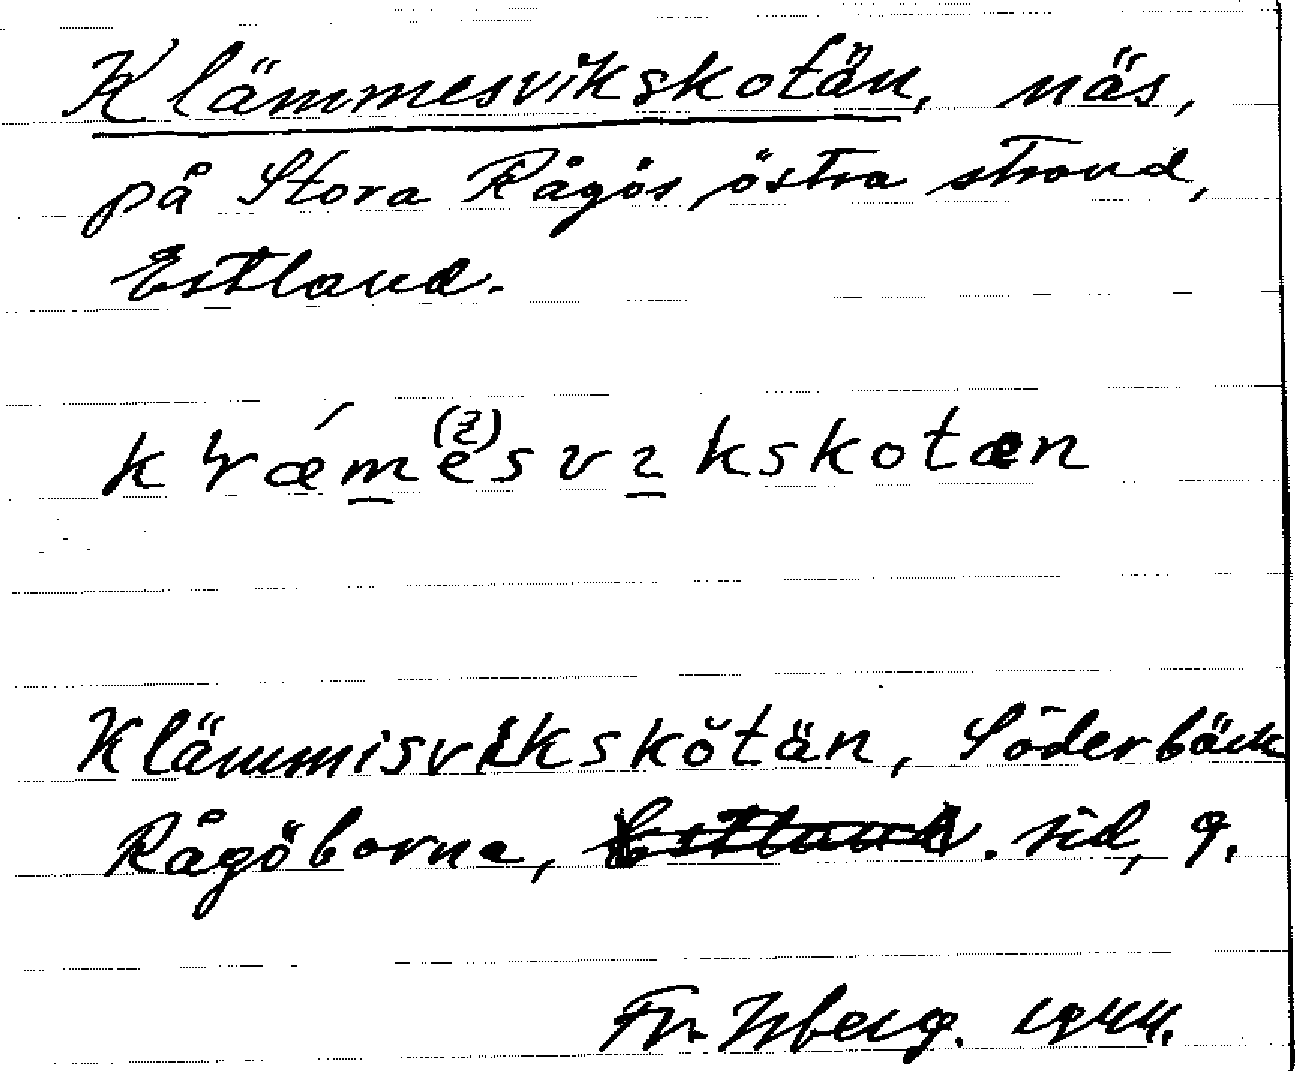 Klämmesvikskotän, näs,
på Stora Rågös östra strand,
Estland.
Klämmisvikskŏtän, Söderbäck
Rågöborna, Estland. sid, 9.
1944.